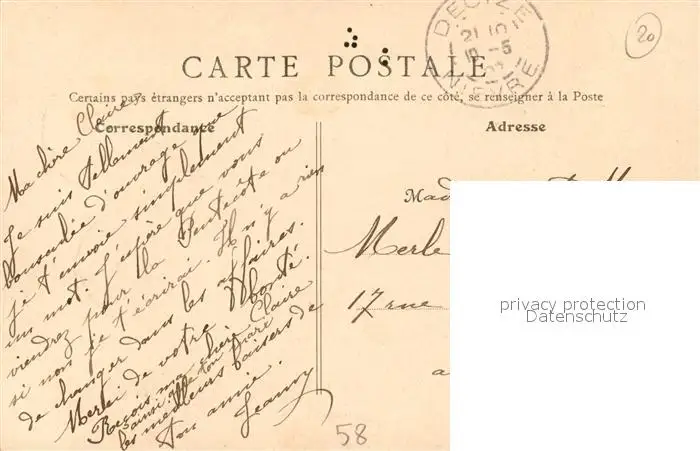 DECIZE
NIÈVRE
20
CARTE POSTALE
Certains pays étrangers n'acceptant pas la correspondance de ce côté, se renseigner à la Poste
Correspondance
Adresse
Ma chère Claire
Je suis tellement
bousculée d'ouvrage que
je t'envoie simplement
un mot. J'espère que vous
viendrez pour la Pentecôte ou
si non je t'écrirai. Il n'y a rien
de changer dans les affaires.
Merci de votre bonté.
Reçois ma chère Claire
ainsi que ton mari
les meilleurs baisers de
ton amie.
Jeanny
Mad
Merle
17 rue
a
58
privacy protection
Datenschutz